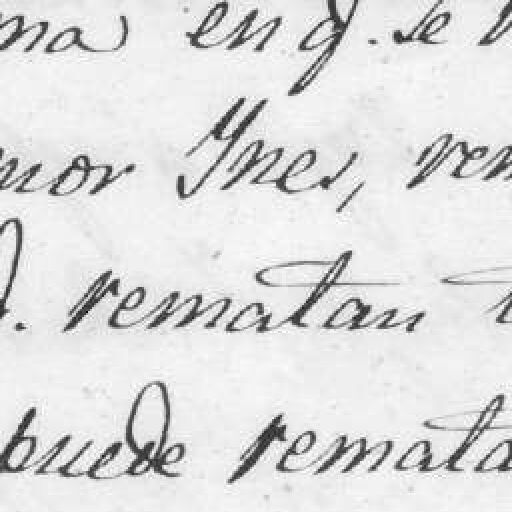 ma en q. se
mor Ynes, rem
d. rematan t
puede remata